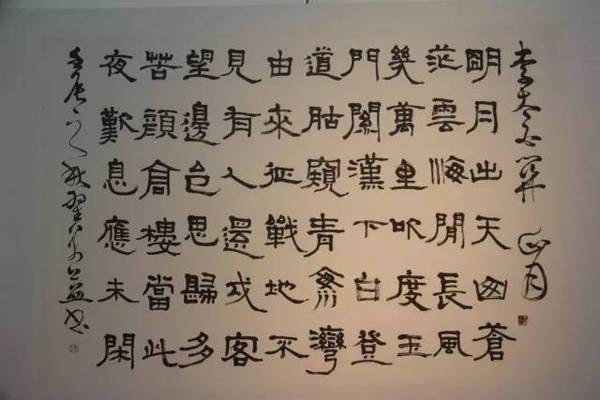 李太白關山月
明月出天山蒼
茫雲海閒長風
幾萬里吹度玉
門關漢下白登
道胡窺青海灣
由來征戰地不
見有人還戍客
望邊色思歸多
苦顏高樓當此
夜歎息應未閑